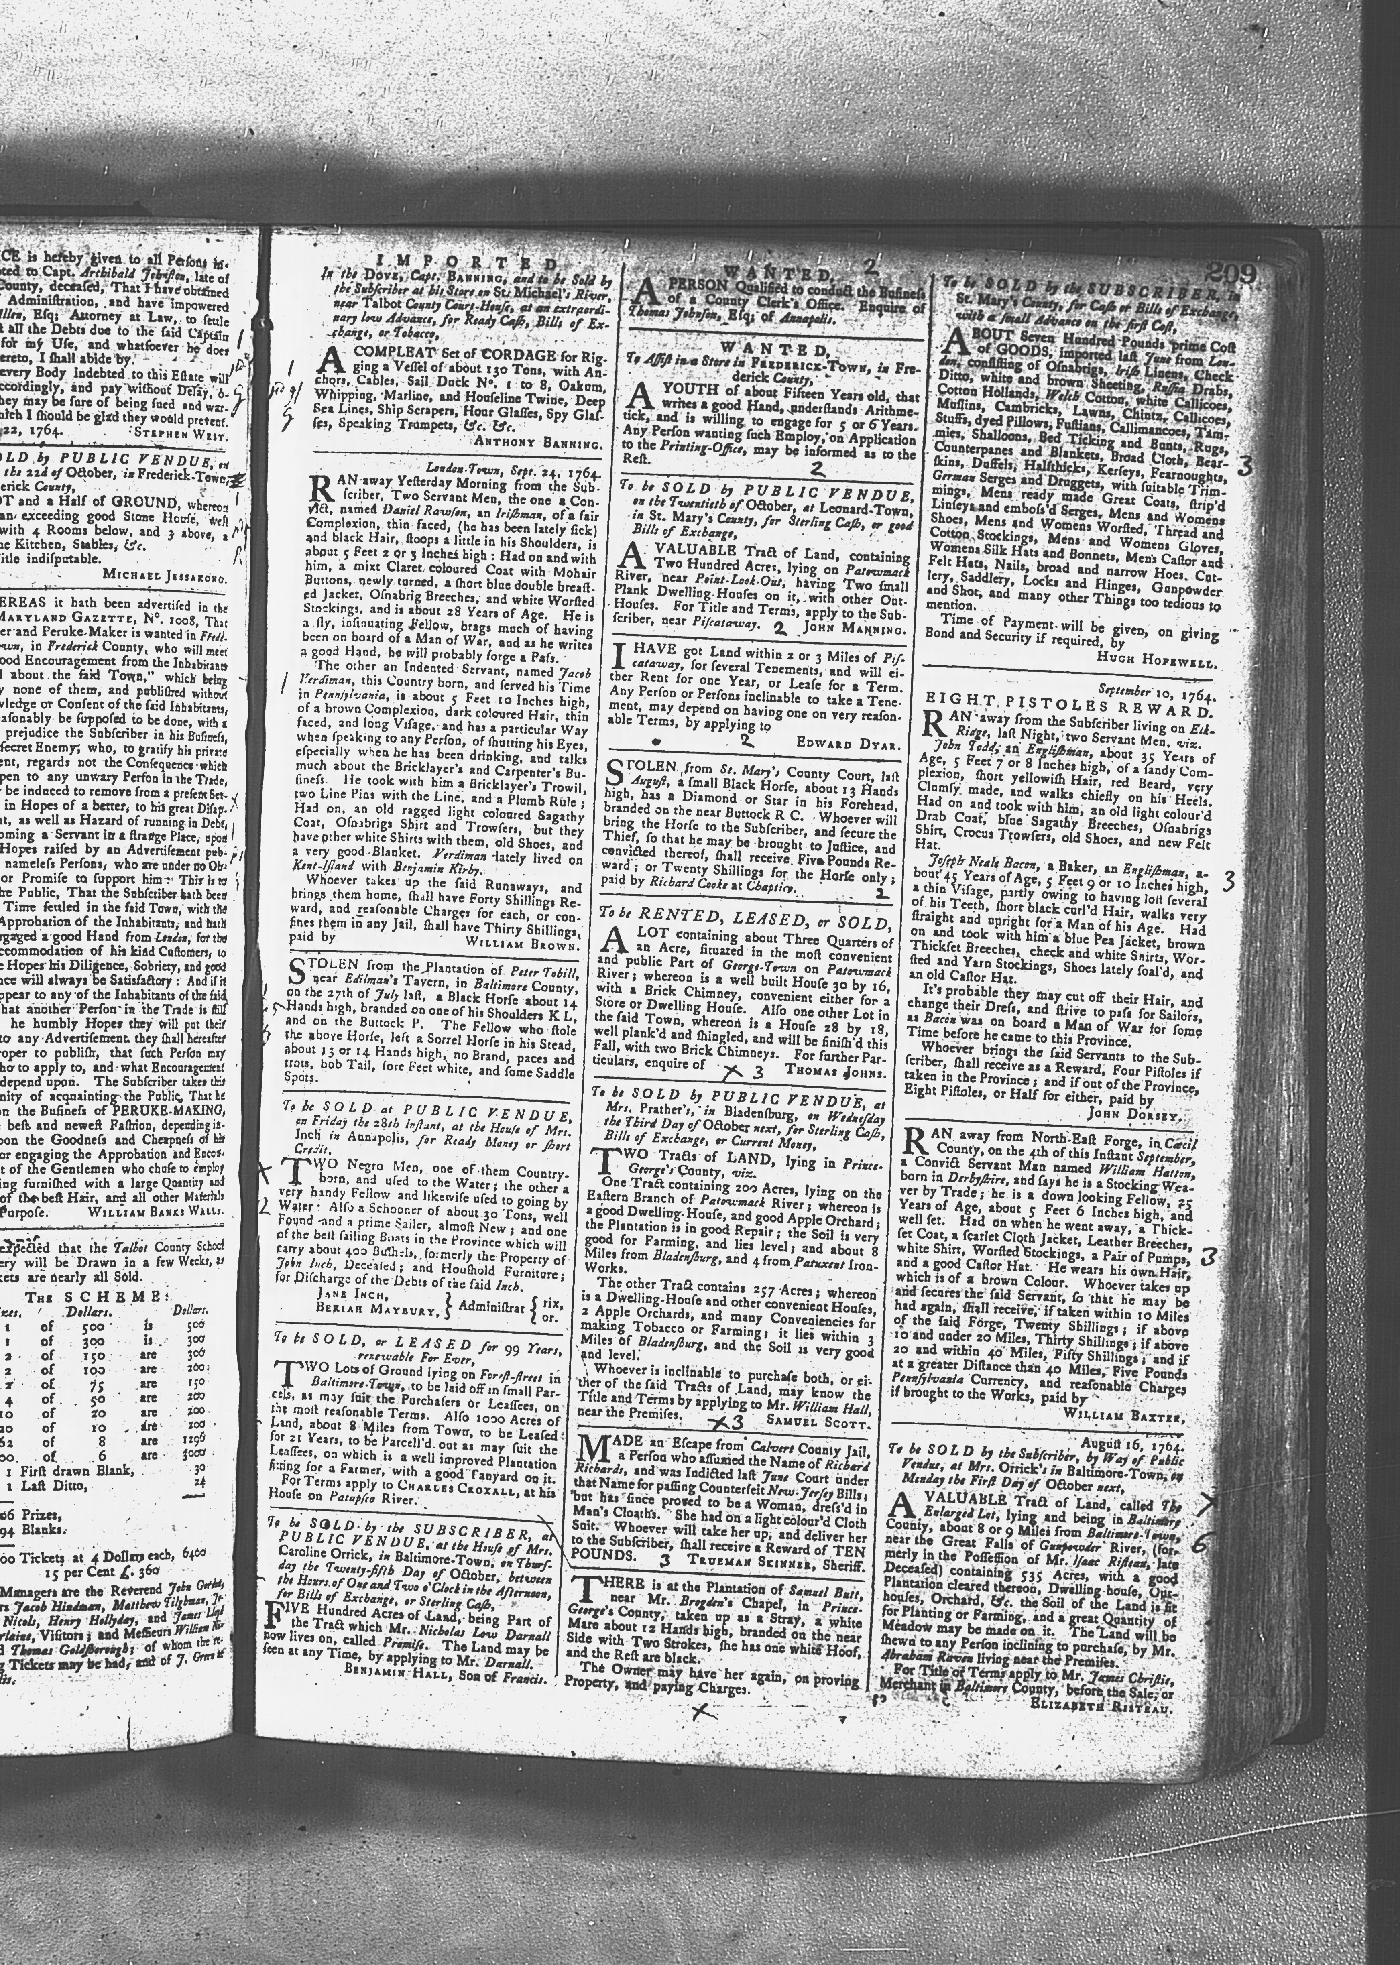 CE is hereby given to all Perſons in-
to Capt. Archibald Johnſton, late of
County, deceaſed, That I have obtained
Adminiſtration, and have impowered
Eſq; Attorney at Law, to ſettle
all the Debts due to the ſaid Captain
for my Uſe, and whatſoever he does
I ſhall abide by.
every Body Indebted to this Eſtate will
accordingly, and pay without Delay,
they may be ſure of being ſued and war-
which I ſhould be glad they would prevent.
22, 1764. STEPHEN WEST.
OLD by PUBLIC VENDUE, on
the 22d of October, in Frederick-Town,
erick County,
OT and a Half of GROUND, whereon
an exceeding good Stone Houſe, well
with 4 Rooms below, and 3 above, a
Kitchen, Stables, &c.
Title indiſputable.
MICHAEL JESSARONG.
EREAS it hath been advertiſed in the
MARYLAND GAZETTE, No. 1008, That
er and Peruke-Maker is wanted in Fred-
in Frederick County, who will meet
ood Encouragement from the Inhabitants
about the ſaid Town," which being
none of them, and publiſhed without
wledge or Conſent of the ſaid Inhabitants,
aſonably be ſuppoſed to be done, with a
prejudice the Subſcriber in his Buſineſs,
ſecret Enemy; who, to gratify his private
ent, regards not the Conſequence which
pen to any unwary Perſon in the Trade,
be induced to remove from a preſent Set-
in Hopes of a better, to his great Diſap-
as well as Hazard of running in Debt,
oming a Servant in a ſtrange Place, upon
Hopes raiſed by an Advertiſement pub-
nameleſs Perſons, who are under no Ob-
or Promiſe to ſupport him: This is to
the Public, That the Subſcriber hath been
Time ſettled in the ſaid Town, with the
Approbation of the Inhabitants, and hath
gaged a good Hand from London, for the
ccommodation of his kind Cuſtomers, to
Hopes his Diligence, Sobriety, and good
nce will always be Satisfactory: And if it
ppear to any of the Inhabitants of the ſaid
hat another Perſon in the Trade is ſtill
he humbly Hopes they will put their
to any Advertiſement they ſhall hereafter
roper to publiſh, that ſuch Perſon may
ho to apply to, and what Encouragement
depend upon. The Subſcriber takes this
nity of acquainting the Public, That he
on the Buſineſs of PERUKE-MAKING,
beſt and neweſt Faſhion, depending
on the Goodneſs and Cheapneſs of his
or engaging the Approbation and Encou-
t of the Gentlemen who choſe to employ
ing furniſhed with a large Quantity and
of the beſt Hair, and all other Materials
Purpoſe. WILLIAM BANKS WALLS.
expected that the Talbot County School
ery will be Drawn in a few Weeks, as
kets are nearly all Sold.
THE SCHEME:
Dollars. Dollars.
1 of 500 is 500
1 of 300 is 300
2 of 150 are 300
2 of 100 are 200
2 of 75 are 150
4 of 50 are 200
10 of 20 are 200
20 of 10 are 200
62 of 8 are 1296
00 of 6 are 3000
1 Firſt drawn Blank, 30
1 Laſt Ditto, 24
Prizes,
94 Blanks.
00 Tickets at 4 Dollars each, 6400
15 per Cent £. 360
Managers are the Reverend John
Jacob Hindman, Matthew Tilghman,
Nicols, Henry Hollyday, and James
Viſitors; and Meſſieurs William
Thomas Goldſborough; of whom the
Tickets may be had, and of J. Green
IMPORTED
In the DOVE, Capt. BANNING, and to be Sold by
the Subſcriber at his Store on St. Michael's River,
near Talbot County Court-Houſe, at an extraordi-
nary low Advance, for Ready Caſh, Bills of Ex-
change, or Tobacco,
A COMPLEAT Set of CORDAGE for Rig-
ging a Veſſel of about 130 Tons, with An-
chors, Cables, Sail Duck No. 1 to 8, Oakum,
Whipping, Marline, and Houſeline Twine, Deep
Sea Lines, Ship Scrapers, Hour Glaſſes, Spy Glaſ-
ſes, Speaking Trumpets, &c. &c.
ANTHONY BANNING.
London-Town, Sept. 24, 1764.
RAN away Yeſterday Morning from the Sub-
ſcriber, Two Servant Men, the one a Con-
vict, named Daniel Rawſon, an Iriſhman, of a fair
Complexion, thin faced, (he has been lately ſick)
and black Hair, ſtoops a little in his Shoulders, is
about 5 Feet 2 or 3 Inches high: Had on and with
him, a mixt Claret coloured Coat with Mohair
Buttons, newly turned, a ſhort blue double breaſt-
ed Jacket, Oſnabrig Breeches, and white Worſted
Stockings, and is about 28 Years of Age. He is
a ſly, inſinuating Fellow, brags much of having
been on board of a Man of War, and as he writes
a good Hand, he will probably forge a Paſs.
The other an Indented Servant, named Jacob
Verdiman, this Country born, and ſerved his Time
in Pennſylvania, is about 5 Feet 10 Inches high,
of a brown Complexion, dark coloured Hair, thin
faced, and long Viſage, and has a particular Way
when ſpeaking to any Perſon, of ſhutting his Eyes,
eſpecially when he has been drinking, and talks
much about the Bricklayer's and Carpenter's Bu-
ſineſs. He took with him a Bricklayer's Trowil,
two Line Pins with the Line, and a Plumb Rule;
Had on, an old ragged light coloured Sagathy
Coat, Oſnabrigs Shirt and Trowſers, but they
have other white Shirts with them, old Shoes, and
a very good Blanket. Verdiman lately lived on
Kent-Iſland with Benjamin Kirby.
Whoever takes up the ſaid Runaways, and
brings them home, ſhall have Forty Shillings Re-
ward, and reaſonable Charges for each, or con-
fines them in any Jail, ſhall have Thirty Shillings,
paid by WILLIAM BROWN.
STOLEN from the Plantation of Peter Tobill,
near Edilman's Tavern, in Baltimore County,
on the 27th of July laſt, a Black Horſe about 14
Hands high, branded on one of his Shoulders K L,
and on the Buttock P. The Fellow who ſtole
the above Horſe, left a Sorrel Horſe in his Stead,
about 13 or 14 Hands high, no Brand, paces and
trots, bob Tail, fore Feet white, and ſome Saddle
Spots.
To be SOLD at PUBLIC VENDUE,
on Friday the 28th Inſtant, at the Houſe of Mrs.
Inch in Annapolis, for Ready Money or ſhort
Credit,
TWO Negro Men, one of them Country-
born, and uſed to the Water; the other a
very handy Fellow and likewiſe uſed to going by
Water: Alſo a Schooner of about 30 Tons, well
Found and a prime Sailer, almoſt New; and one
of the beſt ſailing Boats in the Province which will
carry about 400 Buſhels, formerly the Property of
John Inch, Deceaſed; and Houſhold Furniture;
for Diſcharge of the Debts of the ſaid Inch.
JANE INCH, } Adminiſtrat { rix,
BERIAH MAYBURY, } { or.
To be SOLD, or LEASED for 99 Years,
renewable For Ever,
TWO Lots of Ground lying on Foreſt-ſtreet in
Baltimore-Town, to be laid off in ſmall Par-
cels, as may ſuit the Purchaſers or Leaſſees, on
the moſt reaſonable Terms. Alſo 1000 Acres of
Land, about 8 Miles from Town, to be Leaſed
for 21 Years, to be Parcell'd out as may ſuit the
Leaſſees, on which is a well improved Plantation
fitting for a Farmer, with a good Tanyard on it.
For Terms apply to CHARLES CROXALL, at his
Houſe on Patapſco River.
To be SOLD by the SUBSCRIBER, at
PUBLIC VENDUE, at the Houſe of Mrs.
Caroline Orrick, in Baltimore-Town, on Thurſ-
day the Twenty-fifth Day of October, between
the Hours of One and Two o'Clock in the Afternoon,
for Bills of Exchange, or Sterling Caſh,
FIVE Hundred Acres of Land, being Part of
the Tract which Mr. Nicholas Low Darnall
now lives on, called Promiſe. The Land may be
ſeen at any Time, by applying to Mr. Darnall.
BENJAMIN HALL, Son of Francis.
WANTED, 2
A PERSON Qualified to conduct the Buſineſs
of a County Clerk's Office. Enquire of
Thomas Johnſon, Eſq; of Annapolis.
WANTED,
To Aſſiſt in a Store in FREDERICK-TOWN, in Fre-
derick County,
A YOUTH of about Fifteen Years old, that
writes a good Hand, underſtands Arithme-
tick, and is willing to engage for 5 or 6 Years.
Any Perſon wanting ſuch Employ, on Application
to the Printing-Office, may be informed as to the
Reſt. 2
To be SOLD by PUBLIC VENDUE,
on the Twentieth of October, at Leonard-Town,
in St. Mary's County, for Sterling Caſh, or good
Bills of Exchange,
A VALUABLE Tract of Land, containing
Two Hundred Acres, lying on Patowmack
River, near Point-Look-Out, having Two ſmall
Plank Dwelling-Houſes on it, with other Out-
Houſes. For Title and Terms, apply to the Sub-
ſcriber, near Piſcataway. 2 JOHN MANNING.
I HAVE got Land within 2 or 3 Miles of Piſ-
cataway, for ſeveral Tenements, and will ei-
ther Rent for one Year, or Leaſe for a Term.
Any Perſon or Perſons inclinable to take a Tene-
ment, may depend on having one on very reaſon-
able Terms, by applying to
2 EDWARD DYAR.
STOLEN from St. Mary's County Court, laſt
Auguſt, a ſmall Black Horſe, about 13 Hands
high, has a Diamond or Star in his Forehead,
branded on the near Buttock R C. Whoever will
bring the Horſe to the Subſcriber, and ſecure the
Thief, ſo that he may be brought to Juſtice, and
convicted thereof, ſhall receive Five Pounds Re-
ward; or Twenty Shillings for the Horſe only;
paid by Richard Cooke at Chaptico. 2
To be RENTED, LEASED, or SOLD,
A LOT containing about Three Quarters of
an Acre, ſituated in the moſt convenient
and public Part of George-Town on Patowmack
River; whereon is a well built Houſe 30 by 16,
with a Brick Chimney, convenient either for a
Store or Dwelling Houſe. Alſo one other Lot in
the ſaid Town, whereon is a Houſe 28 by 18,
well plank'd and ſhingled, and will be finiſh'd this
Fall, with two Brick Chimneys. For further Par-
ticulars, enquire of X 3 THOMAS JOHNS.
To be SOLD by PUBLIC VENDUE, at
Mrs. Prather's, in Bladenſburg, on Wedneſday
the Third Day of October next, for Sterling Caſh,
Bills of Exchange, or Current Money,
TWO Tracts of LAND, lying in Prince-
George's County, viz.
One Tract containing 200 Acres, lying on the
Eaſtern Branch of Patowmack River; whereon is
a good Dwelling-Houſe, and good Apple Orchard;
the Plantation is in good Repair; the Soil is very
good for Farming, and lies level; and about 8
Miles from Bladenſburg, and 4 from Patuxent Iron-
Works.
The other Tract contains 257 Acres; whereon
is a Dwelling-Houſe and other convenient Houſes,
2 Apple Orchards, and many Conveniencies for
making Tobacco or Farming; it lies within 3
Miles of Bladenſburg, and the Soil is very good
and level.
Whoever is inclinable to purchaſe both, or ei-
ther of the ſaid Tracts of Land, may know the
Title and Terms by applying to Mr. William Hall,
near the Premiſes. X3 SAMUEL SCOTT.
MADE an Eſcape from Calvert County Jail,
a Perſon who aſſumed the Name of Richard
Richards, and was Indicted laſt June Court under
that Name for paſſing Counterfeit New-Jerſey Bills;
but has ſince proved to be a Woman, dreſs'd in
Man's Cloaths. She had on a light colour'd Cloth
Suit. Whoever will take her up, and deliver her
to the Subſcriber, ſhall receive a Reward of TEN
POUNDS. 3 TRUEMAN SKINNER, Sheriff.
THERE is at the Plantation of Samuel Butt,
near Mr. Brogden's Chapel, in Prince-
George's County, taken up as a Stray, a white
Mare about 12 Hands high, branded on the near
Side with Two Strokes, ſhe has one white Hoof,
and the Reſt are black.
The Owner may have her again, on proving
Property, and paying Charges.
X
209
To be SOLD by the SUBSCRIBER in
St. Mary's County, for Caſh or Bills of Exchange,
with a ſmall Advance on the firſt Coſt,
ABOUT Seven Hundred Pounds prime Coſt
of GOODS, imported laſt June from Lon-
don, conſiſting of Oſnabrigs, Iriſh Linens, Check
Ditto, white and brown Sheeting, Ruſſia Drabs,
Cotton Hollands, Welch Cotton, white Callicoes,
Muſlins, Cambricks, Lawns, Chintz, Callicoes,
Stuffs, dyed Pillows, Fuſtians, Callimancoes, Tam-
mies, Shalloons, Bed Ticking and Bunts, Rugs,
Counterpanes and Blankets, Broad Cloth, Bear-
ſkins, Duffels, Halfthicks, Kerſeys, Fearnoughts,
German Serges and Druggets, with ſuitable Trim-
mings, Mens ready made Great Coats, ſtrip'd
Linſeys and emboſs'd Serges, Mens and Womens
Shoes, Mens and Womens Worſted, Thread and
Cotton Stockings, Mens and Womens Gloves,
Womens Silk Hats and Bonnets, Men's Caſtor and
Felt Hats, Nails, broad and narrow Hoes, Cut-
lery, Saddlery, Locks and Hinges, Gunpowder
and Shot, and many other Things too tedious to
mention.
Time of Payment will be given, on giving
Bond and Security if required, by
HUGH HOPEWELL.
3
September 10, 1764.
EIGHT PISTOLES REWARD.
RAN away from the Subſcriber living on Elk-
Ridge, laſt Night, two Servant Men, viz.
John Todd, an Engliſhman, about 35 Years of
Age, 5 Feet 7 or 8 Inches high, of a ſandy Com-
plexion, ſhort yellowiſh Hair, red Beard, very
Clumſy made, and walks chiefly on his Heels.
Had on and took with him, an old light colour'd
Drab Coat, blue Sagathy Breeches, Oſnabrigs
Shirt, Crocus Trowſers, old Shoes, and new Felt
Hat.
Joſeph Neale Bacon, a Baker, an Engliſhman, a-
bout 45 Years of Age, 5 Feet 9 or 10 Inches high,
a thin Viſage, partly owing to having loſt ſeveral
of his Teeth, ſhort black curl'd Hair, walks very
ſtraight and upright for a Man of his Age. Had
on and took with him a blue Pea Jacket, brown
Thickſet Breeches, check and white Shirts, Wor-
ſted and Yarn Stockings, Shoes lately ſoal'd, and
an old Caſtor Hat.
It's probable they may cut off their Hair, and
change their Dreſs, and ſtrive to paſs for Sailors,
as Bacon was on board a Man of War for ſome
Time before he came to this Province.
Whoever brings the ſaid Servants to the Sub-
ſcriber, ſhall receive as a Reward, Four Piſtoles if
taken in the Province; and if out of the Province,
Eight Piſtoles, or Half for either, paid by
JOHN DORSEY.
3
RAN away from North-Eaſt Forge, in Cæcil
County, on the 4th of this Inſtant September,
a Convict Servant Man named William Hatton,
born in Derbyſhire, and ſays he is a Stocking Wea-
ver by Trade; he is a down looking Fellow, 25
Years of Age, about 5 Feet 6 Inches high, and
well ſet. Had on when he went away, a Thick-
ſet Coat, a ſcarlet Cloth Jacket, Leather Breeches,
white Shirt, Worſted Stockings, a Pair of Pumps,
and a good Caſtor Hat. He wears his own Hair,
which is of a brown Colour. Whoever takes up
and ſecures the ſaid Servant, ſo that he may be
had again, ſhall receive, if taken within 10 Miles
of the ſaid Forge, Twenty Shillings; if above
10 and under 20 Miles, Thirty Shillings; if above
20 and within 40 Miles, Fifty Shillings; and if
at a greater Diſtance than 40 Miles, Five Pounds
Pennſylvania Currency, and reaſonable Charges
if brought to the Works, paid by
WILLIAM BAXTER.
3
Auguſt 16, 1764.
To be SOLD by the Subſcriber, by Way of Public
Vendue, at Mrs. Orrick's in Baltimore-Town, on
Monday the Firſt Day of October next,
A VALUABLE Tract of Land, called The
Enlarged Lot, lying and being in Baltimore
County, about 8 or 9 Miles from Baltimore-Town,
near the Great Falls of Gunpowder River, (for-
merly in the Poſſeſſion of Mr. Iſaac Riſteau, late
Deceaſed) containing 535 Acres, with a good
Plantation cleared thereon, Dwelling-houſe, Out-
houſes, Orchard, &c. the Soil of the Land is fit
for Planting or Farming, and a great Quantity of
Meadow may be made on it. The Land will be
ſhewn to any Perſon inclining to purchaſe, by Mr.
Abraham Raven living near the Premiſes.
For Title or Terms apply to Mr. James Chriſtie,
Merchant in Baltimore County, before the Sale, or
ELIZABETH RISTEAU.
X
6